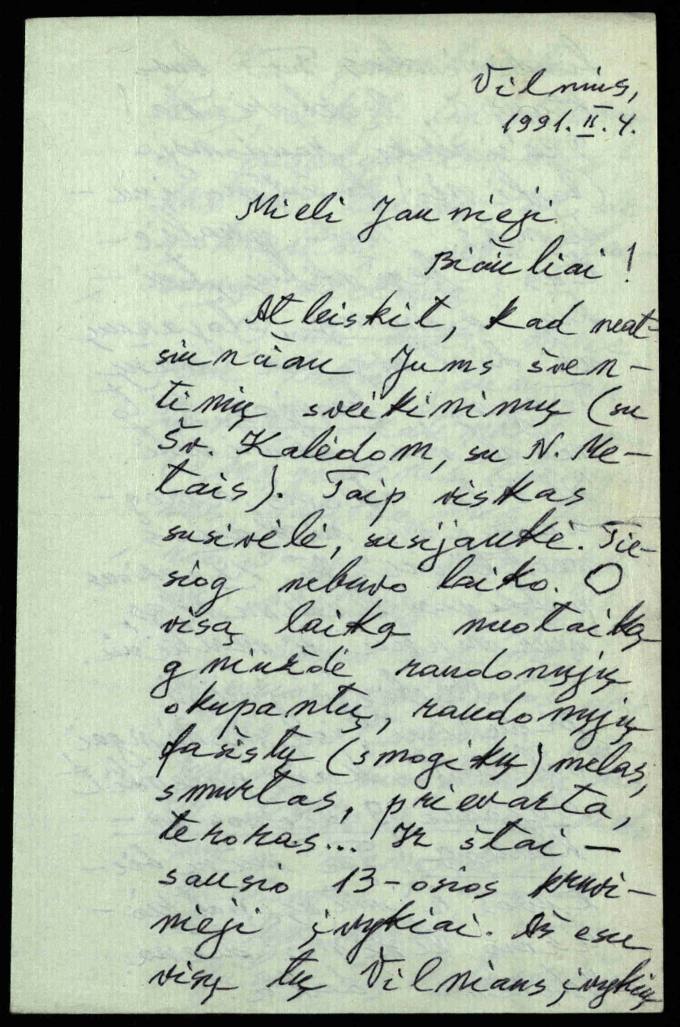 Vilnius,
1991.II.4.
Mieli Jaunieji
Bičiuliai!
Atleiskit, kad neat-
siunčiau Jums šven-
tinių sveikinimų (su
Šv. Kalėdom, su N. Me-
tais). Taip viskas
susivėlė, susijaukė. Tie-
siog nebuvo laiko. O
visą laiką nuotaiką
gniuždė raudonųjų
okupantų, raudonųjų
fašistų (smogikų) melas,
smurtas, prievarta,
teroras... Ir štai –
sausio 13-osios kruvi-
nieji įvykiai. Aš esu
visų tų Vilniaus įvykių